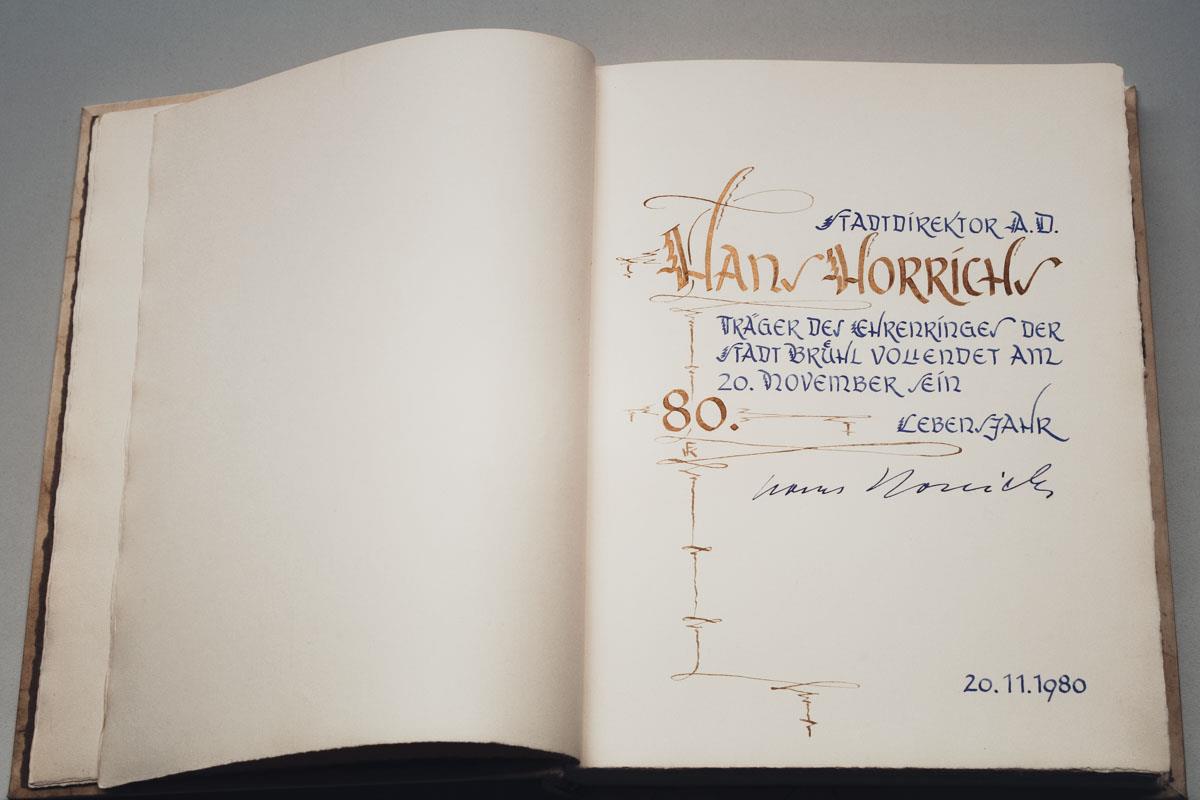 STADTDIREKTOR A.D.
HANS HORRICHS
TRÄGER DES EHRENRINGES DER
STADT BRÜHL VOLLENDET AM
20. NOVEMBER SEIN
80.
LEBENSJAHR
Hans Horrichs
20.11.1980